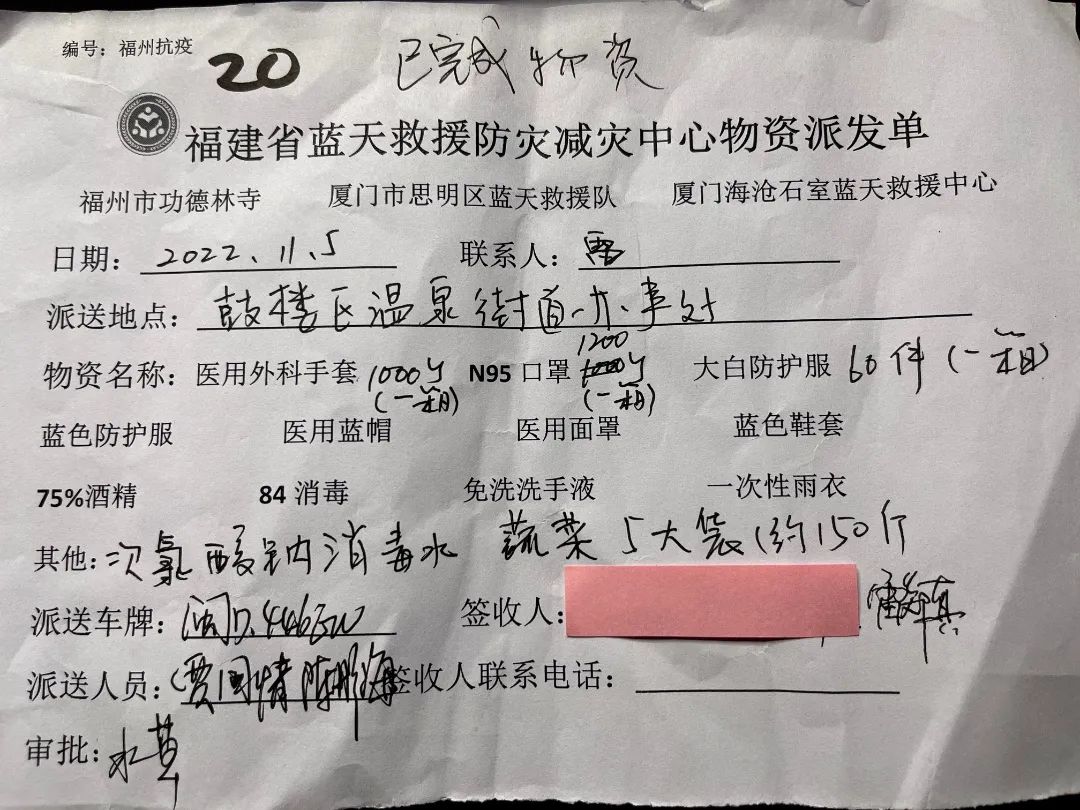 编号：福州抗疫 20 已完成物资
福建省蓝天救援防灾减灾中心物资派发单
福州市功德林寺 厦门市思明区蓝天救援队 厦门海沧石室蓝天救援中心
日期：2022.11.5 联系人：雷
派送地点：鼓楼区温泉街道办事处
1200
物资名称：医用外科手套 1000个 N95口罩 个 大白防护服 60件（一箱）
（一箱） （一箱）
蓝色防护服 医用蓝帽 医用面罩 蓝色鞋套
75%酒精 84消毒 免洗洗手液 一次性雨衣
其他：次氯酸钠消毒水 蔬菜5大袋（约150斤
派送车牌：闽D. 签收人：
派送人员： 签收人联系电话：
审批：